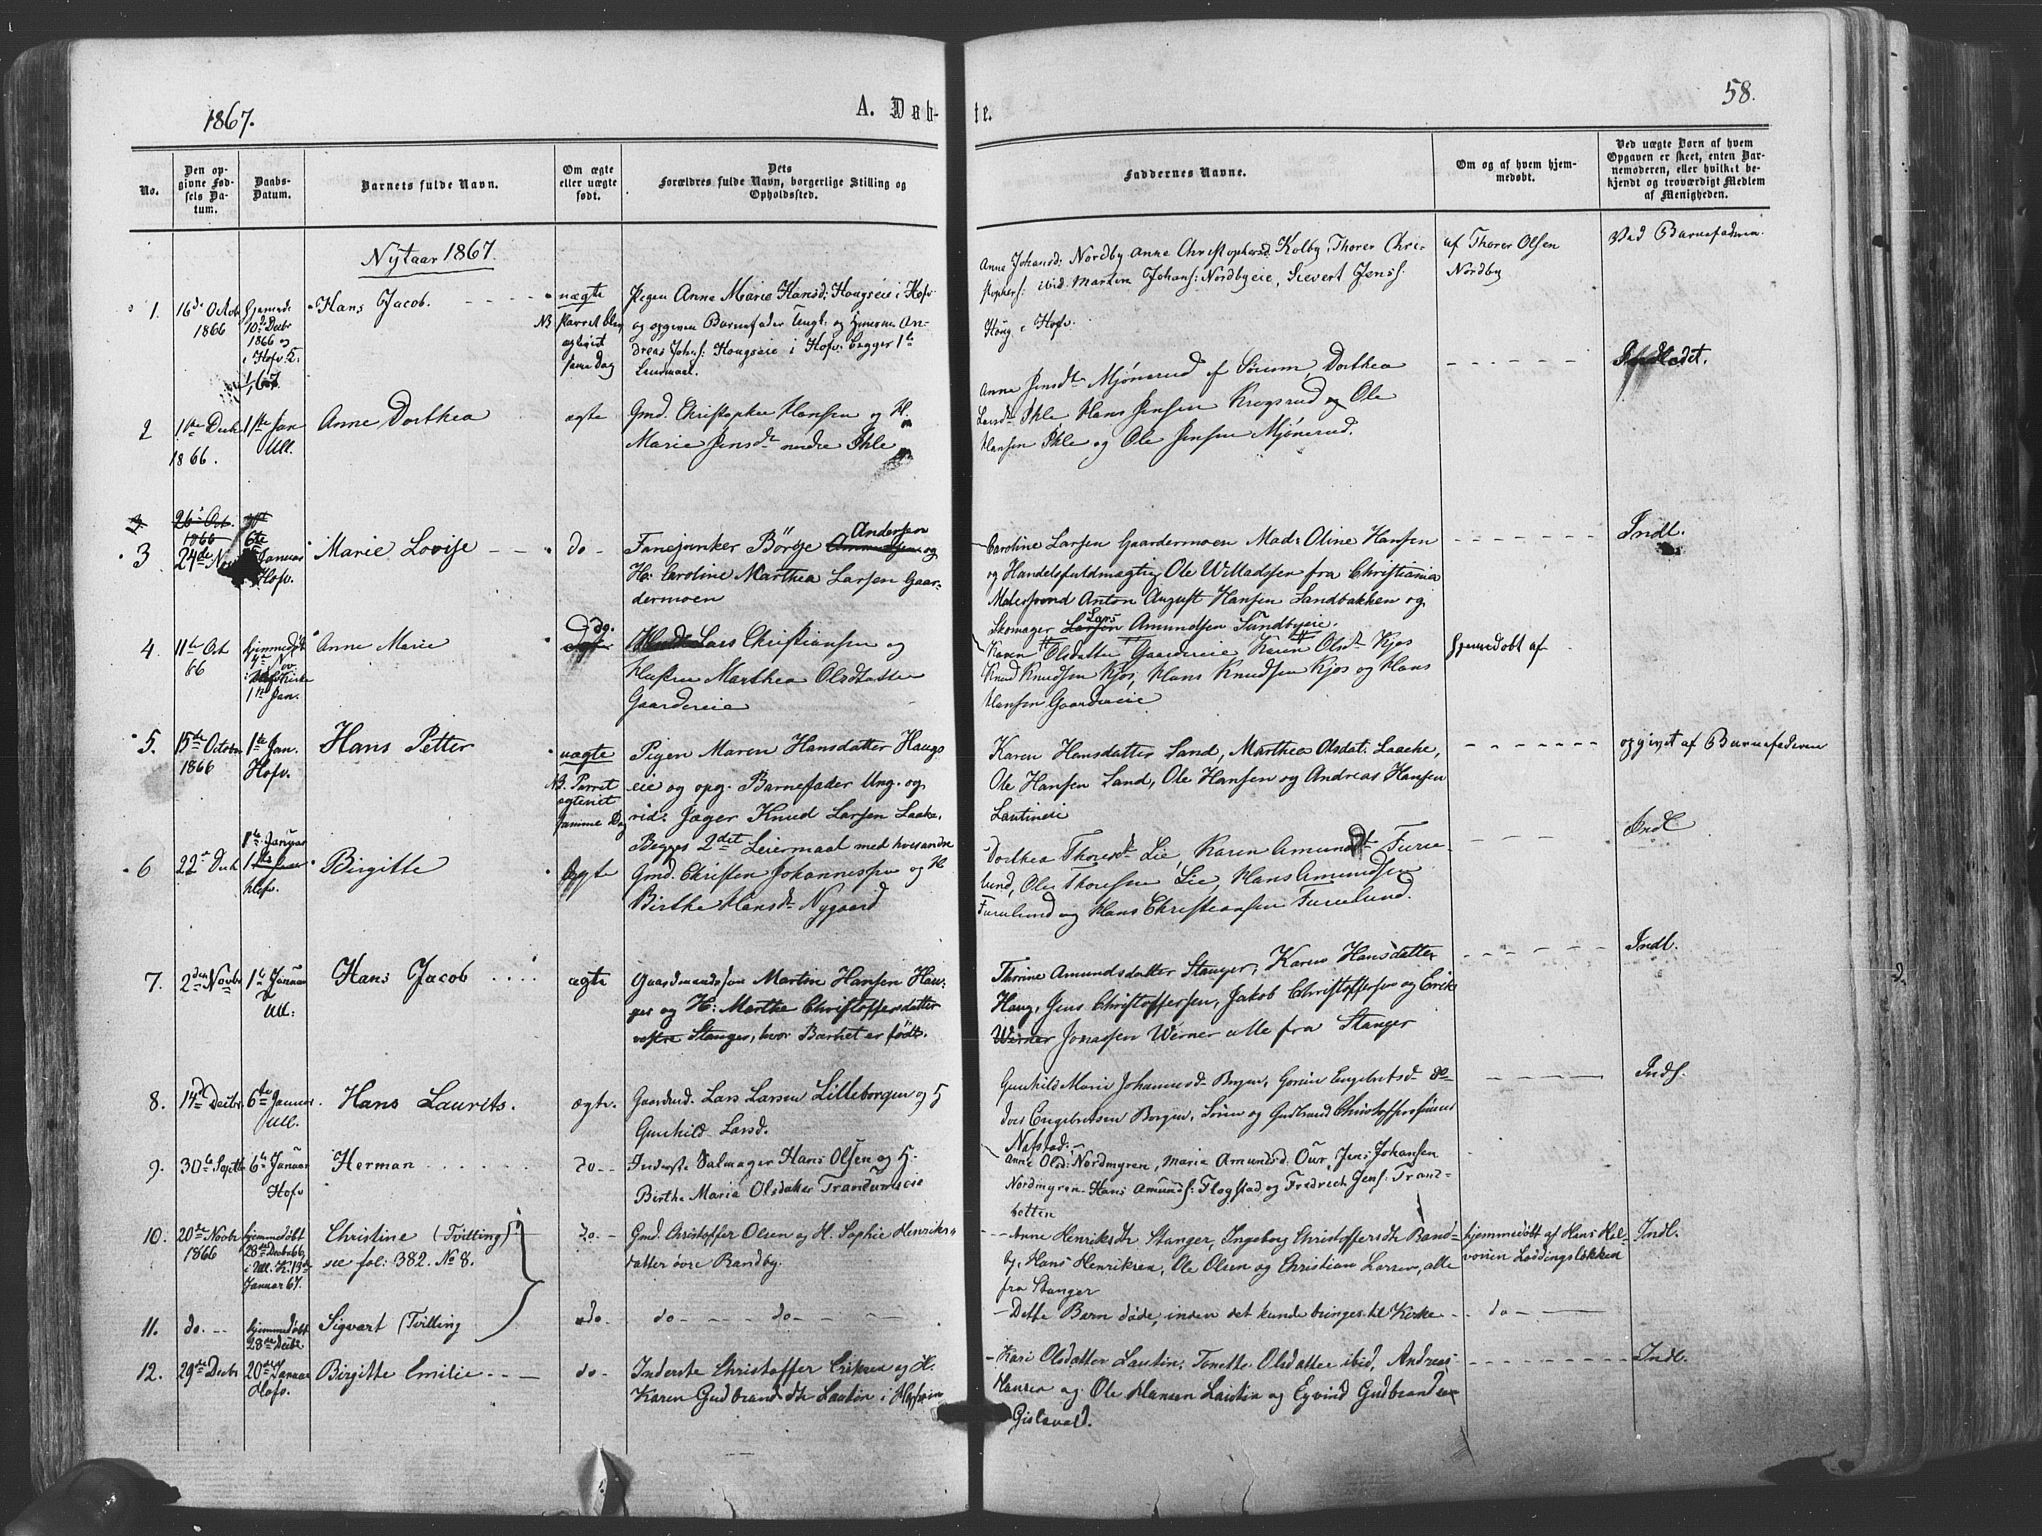 1867.
A. Døb-
te.
58.
No.
Den op-
givne Fød-
sels Da-
tum.
Daabs-
Datum.
Barnets fulde Navn.
Om ægte
eller uægte
født.
Dets
Forældres fulde Navn, borgerlige Stilling og
Opholdssted.
Faddernes Navne.
Om og af hvem hjem-
medøbt.
Ved uægte Børn af hvem
Opgaven er skeet, enten Bar-
nemoderen, eller hvilket be-
kjendt og troværdigt Medlem
af Menigheden.
Nytaar 1867.
1.
16de Octob
1866
hjemmed
10de Decbr
1866 og
i Hofv. K.
1/1 67.
Hans Jacob.
uægte
NB Parret blev
ægteviet
samme Dag
Pigen Anne Marie Hansd: Hougseie i Hofv
og opgiven Barnefader Ungk. og Husmand An-
dreas Johs: Hougseie i Hofv. begges 1te
Leiermaal.
Anne Johansd: Nordby Anne Christophersd: Kolby, Thorer Chri-
stophers: ibid. Martin Johans: Nordbyeie, Sievert Jens:
Houg i Hofv.
af Thorer Olsen
Nordby
Ved Barnefaderen.
2
1ste Decb
1866.
1ste Jan
Ull.
Anne Dorthea
ægte
Gmd. Christopher Hansen og H.
Marie Jensdtr nedre Ihle
Anne Jensdtr Mjønerud af Sørum, Dorthea
Larsdtr Ihle Hans Jensen Krogsrud og Ole
Hansen Ihle og Ole Jensen Mjønerud.
Indladet.
3
26de Oct.
1866
3
24de Nov
6te
Januar
Hofv.
Marie Lovise
do
Fanejunker Börge Andersen og
H: Caroline Marthea Larsen Gaar-
dermoen
Caroline Larsen Gaardermoen Mad: Oline Hansen
og Handelsfuldmægtig Ole Willadssen fra Christiania
Malersvend Anton August Hansen Sandbakken og
Skomager Lars Amundsen Sundbyeie.
Indl.
4.
11te Oct
66
hjemmedøbt
4de Nov.
i Hofv Kirke
1te Jan.
Anne Marie
do.
Lars Christiansen og
Hustru Marthea Olsdatter
Gaardereie
Karen Olsdatter Gaardereie Karen Olsdtr Kjos
Knud Knudsen Kjos, Hans Knudsen Kjos og Hans
Hansen Gaardereie
Hjemmedøbt af
5.
15de Octobr
1866
1te Jan.
Hofv.
Hans Petter
uægte
NB. Parret
ægteviet
samme Dag
Pigen Maren Hansdatter Haugs
eie og opg. Barnefader Ung. og
rid: Jæger Knud Larsen Laake,
Begges 2det Leiermaal med hverandre
Karen Hansdatter Sand, Marthea Olsdat. Laake,
Ole Hansen Sand, Ole Hansen og Andreas Hansen
Lautineie
opgivet af Barnefaderen
6
22de Decb
1te Januar
1te Jan
Hofv.
Birgitte
Ægte
Gmd. Christen Johannessen og H
Birthe Hansdtr Nygaard
Dorthea Thoresdtr Lie, Karen Amundsdtr Furu-
lund, Ole Thoresen Lie, Hans Amundsen
Furulund og Hans Christiansen Furulund.
Indl
7.
2den Novbr
1te Januar
Ull.
Hans Jacob
ægte
Gaardmandssøn Martin Hansen Hau-
ger og H: Marthe Christoffersdatter
vestre Stanger, hvor Barnet er født.
Thrine Amundsdatter Stanger, Karen Hansdatter
Haug, Jens Christoffersen, Jakob Christoffersen og Erik
Werner Jonassen Werner alle fra Stanger
Indl.
8.
14de Decbr
6te Januar.
Ull.
Hans Laurits.
ægte.
Gaardmd. Lars Larsen Lilleborgen og H
Gunhild Larsd.
Gunhild Marie Johannesd. Borgen, Gorine Engebretsd.
Engebretsen Borgen, Søren og Gudbrand
Nafstad.
Indl.
9.
30te Septbr
6te Januar
Hofv
Herman
do
Inderste Salmager Hans Olsen og H.
Birthe Maria Olsdatter Trandumseie
Anne Olsd: Nordmyren, Maria Amundsd: Our, Jens Johansen
Nordmyren, Hans Amunds: Flogstad, og Fredrech Jens: Trand-
betten
10.
20de Novbr
1866
hjemmedøbt
28de Decbr 66
i Ull. K. 13de
Januar 67.
Christine (Tvilling)
see fol: 382. No 8.
do
Gmd. Christoffer Olsen og H. Sophie Henriks-
datter øvre Bandby.
Anne Henriksdtr Stanger, Ingeborg Christoffersdtr Band-
by, Hans Henriksen, Ole Olsen og Christian Larsen, alle
fra Stanger
hjemmedøbt af Hans Hal-
vorsen Loddingsløkken
Indl.
11.
do.
hjemmedøbt
28de Decbr
Sigvart (Tvilling
do
do do
Dette Barn døde, inden det kunde bringes til Kirke
do
12.
29de Decbr
20de Januar
Hofv.
Birgitte Emilie
do
Inderste Christoffer Eriksen og H.
Karen Gudbrandsdtr Lautin i
Kari Olsdatter Lautin, Tonette Olsdatter ibid, Andreas
Hansen og Ole Hansen Lautin og Eyvind Gudbrandsen
Gislevold.
Indl.